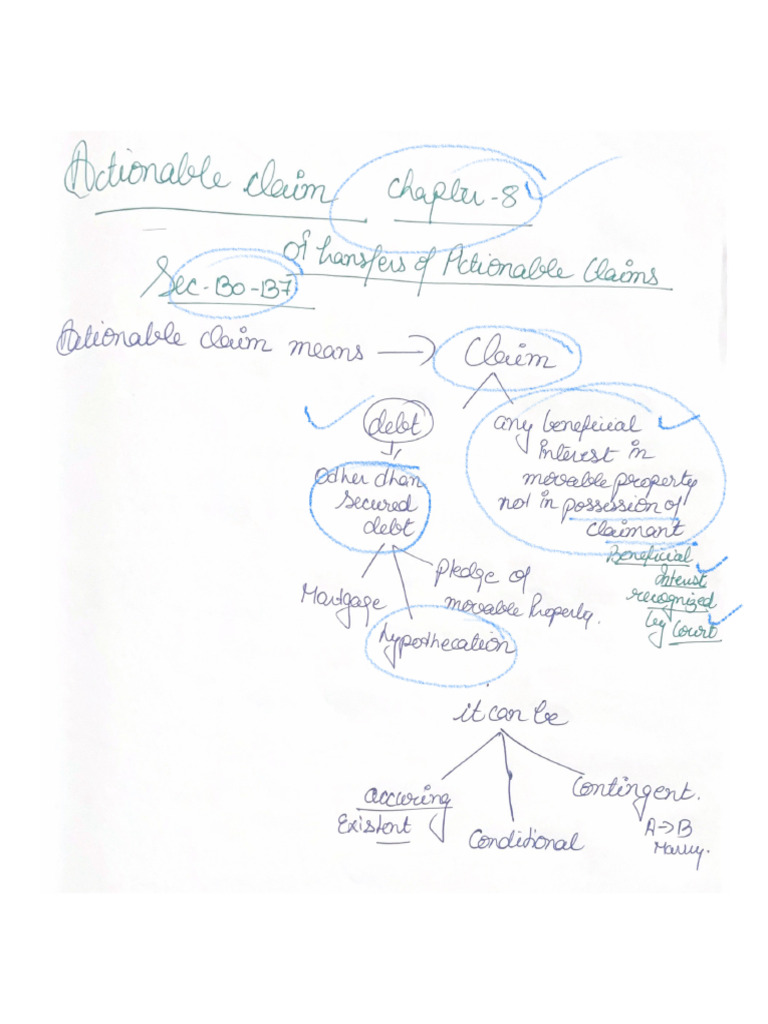 Actionable claim chapter-8
Of transfers of Actionable Claims
Sec-130-137
Actionable claim means → Claim
debt
any beneficial
interest in
movable property
not in possession of
claimant
Other than
secured
debt
Beneficial
Interest
recognized
by Court
Mortgage
pledge of
movable Property.
hypothecation
it can be
accuring
Existent
Conditional
Contingent.
A→B
Marry.